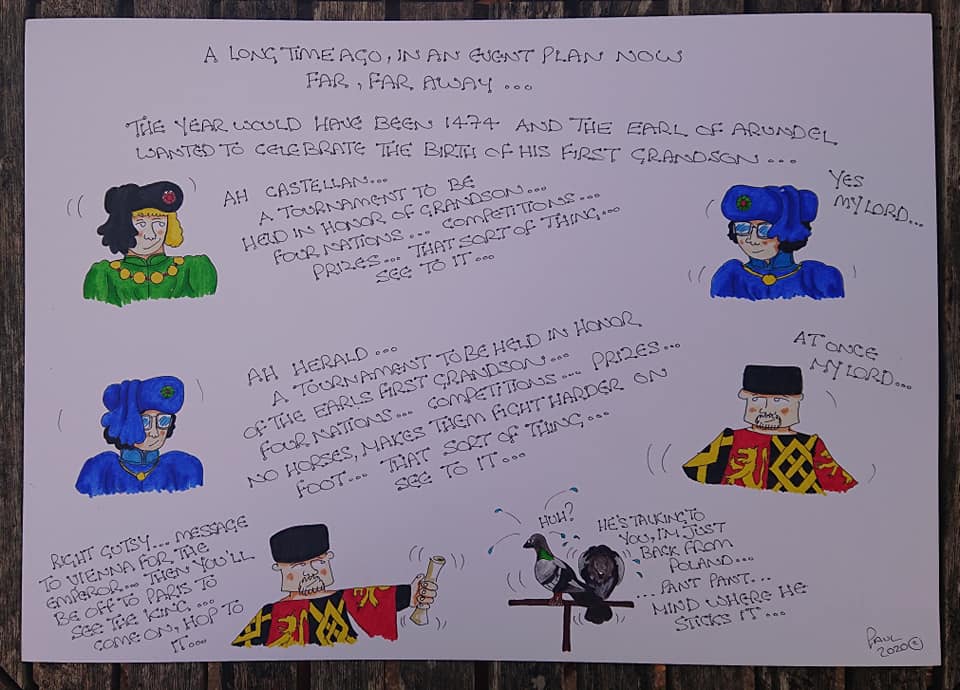 A LONG TIME AGO, IN AN EVENT PLAN NOW
FAR, FAR AWAY...
THE YEAR WOULD HAVE BEEN 1474 AND THE EARL OF ARUNDEL
WANTED TO CELEBRATE THE BIRTH OF HIS FIRST GRANDSON...
AH CASTELLAN...
A TOURNAMENT TO BE
HELD IN HONOR OF GRANDSON...
FOUR NATIONS... COMPETITIONS...
PRIZES... THAT SORT OF THING...
SEE TO IT...
YES
MY LORD...
AH HERALD...
A TOURNAMENT TO BE HELD IN HONOR
OF THE EARLS FIRST GRANDSON...
FOUR NATIONS... COMPETITIONS... PRIZES...
NO HORSES, MAKES THEM FIGHT HARDER ON
FOOT... THAT SORT OF THING...
SEE TO IT...
AT ONCE
MY LORD...
RIGHT GUTSY... MESSAGE
TO VIENNA FOR THE
EMPEROR... THEN YOU'LL
BE OFF TO PARIS TO
SEE THE KING...
COME ON, HOP TO
IT...
HUH?
HE'S TALKING TO
YOU, I'M JUST
BACK FROM
POLAND...
... PANT PANT...
MIND WHERE HE
STICKS IT...
PAUL
2020©